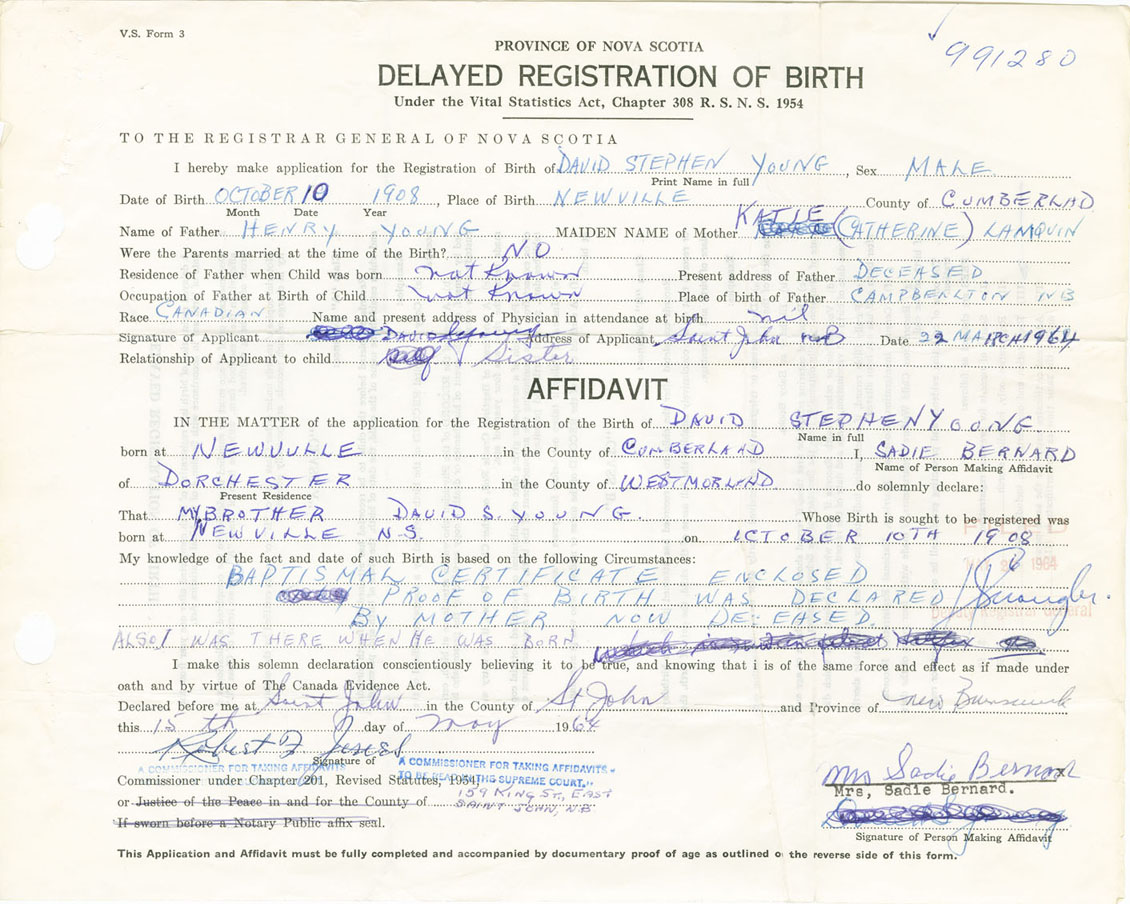 V.S. Form 3
991280
PROVINCE OF NOVA SCOTIA
DELAYED REGISTRATION OF BIRTH
Under the Vital Statistics Act, Chapter 308 R. S. N. S. 1954
TO THE REGISTRAR GENERAL OF NOVA SCOTIA
I hereby make application for the Registration of Birth of DAVID STEPHEN YOUNG, Sex MALE
Print Name in full
Date of Birth OCTOBER 10 1908, Place of Birth NEWVILLE County of CUMBERLAD
Month Date Year
Name of Father HENRY YOUNG MAIDEN NAME of Mother KATIE (CATHERINE) LAMQUIN
Were the Parents married at the time of the Birth? NO
Residence of Father when Child was born not Known Present address of Father DECEASED
Occupation of Father at Birth of Child not Known Place of birth of Father CAMPBELLTON NB
Race CANADIAN Name and present address of Physician in attendance at birth nil
Signature of Applicant DAVID S young Address of Applicant Saint John NB Date 22 MARCH 1964
Relationship of Applicant to child Sister
AFFIDAVIT
IN THE MATTER of the application for the Registration of the Birth of DAVID STEPHEN YOONG
Name in full
born at NEWVULLE in the County of CUMBERLAAD I, SADIE BERNARD
Name of Person Making Affidavit
of DORCHESTER in the County of WESTMORLAD do solemnly declare:
Present Residence
That MY BROTHER DAVID S. YOUNG. Whose Birth is sought to be registered was
born at NEWVILLE N.S. on OCTOBER 10TH 1908
My knowledge of the fact and date of such Birth is based on the following Circumstances:
BAPTISMAL CERTIFICATE ENCLOSED
1964
PROOF OF BIRTH WAS DECLARED
General
BY MOTHER NOW DECEASED.
ALSO I WAS THERE WHEN HE WAS BORN
I make this solemn declaration conscientiously believing it to be true, and knowing that i is of the same force and effect as if made under
oath and by virtue of The Canada Evidence Act.
Declared before me at Saint John in the County of St John and Province of new Brunswick
this 15 th day of May 1964
Signature of
A COMMISSIONER FOR TAKING AFFIDAVITS
A COMMISSIONER FOR TAKING AFFIDAVITS
TO BE READ IN THE SUPREME COURT.
Commissioner under Chapter 201, Revised Statutes, 1954)
or Justice of the Peace in and for the County of 159 KING ST, EAST
SAINT JOHN, NB
If sworn before a Notary Public affix seal.
Mrs Sadie Bernard
Mrs, Sadie Bernard.
Signature of Person Making Affidavit
This Application and Affidavit must be fully completed and accompanied by documentary proof of age as outlined o the reverse side of this form.